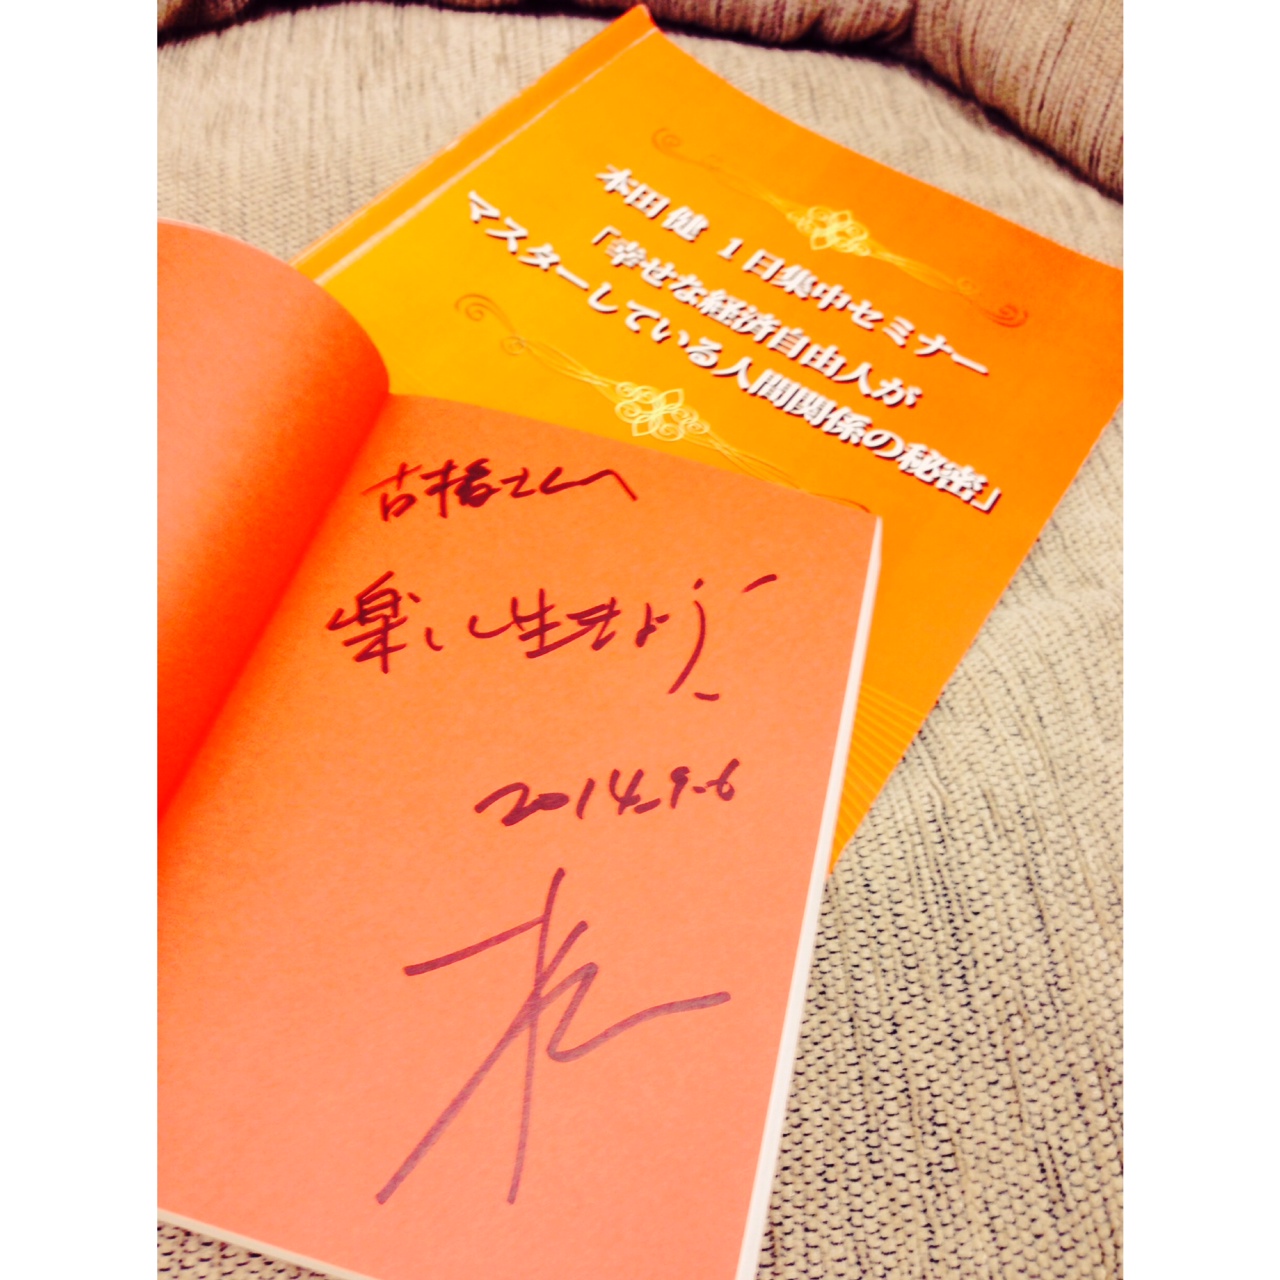 本田 健 1日集中セミナー
「幸せな経済自由人が
マスターしている人間関係の秘密」
楽しく生きよう
2014.9.6